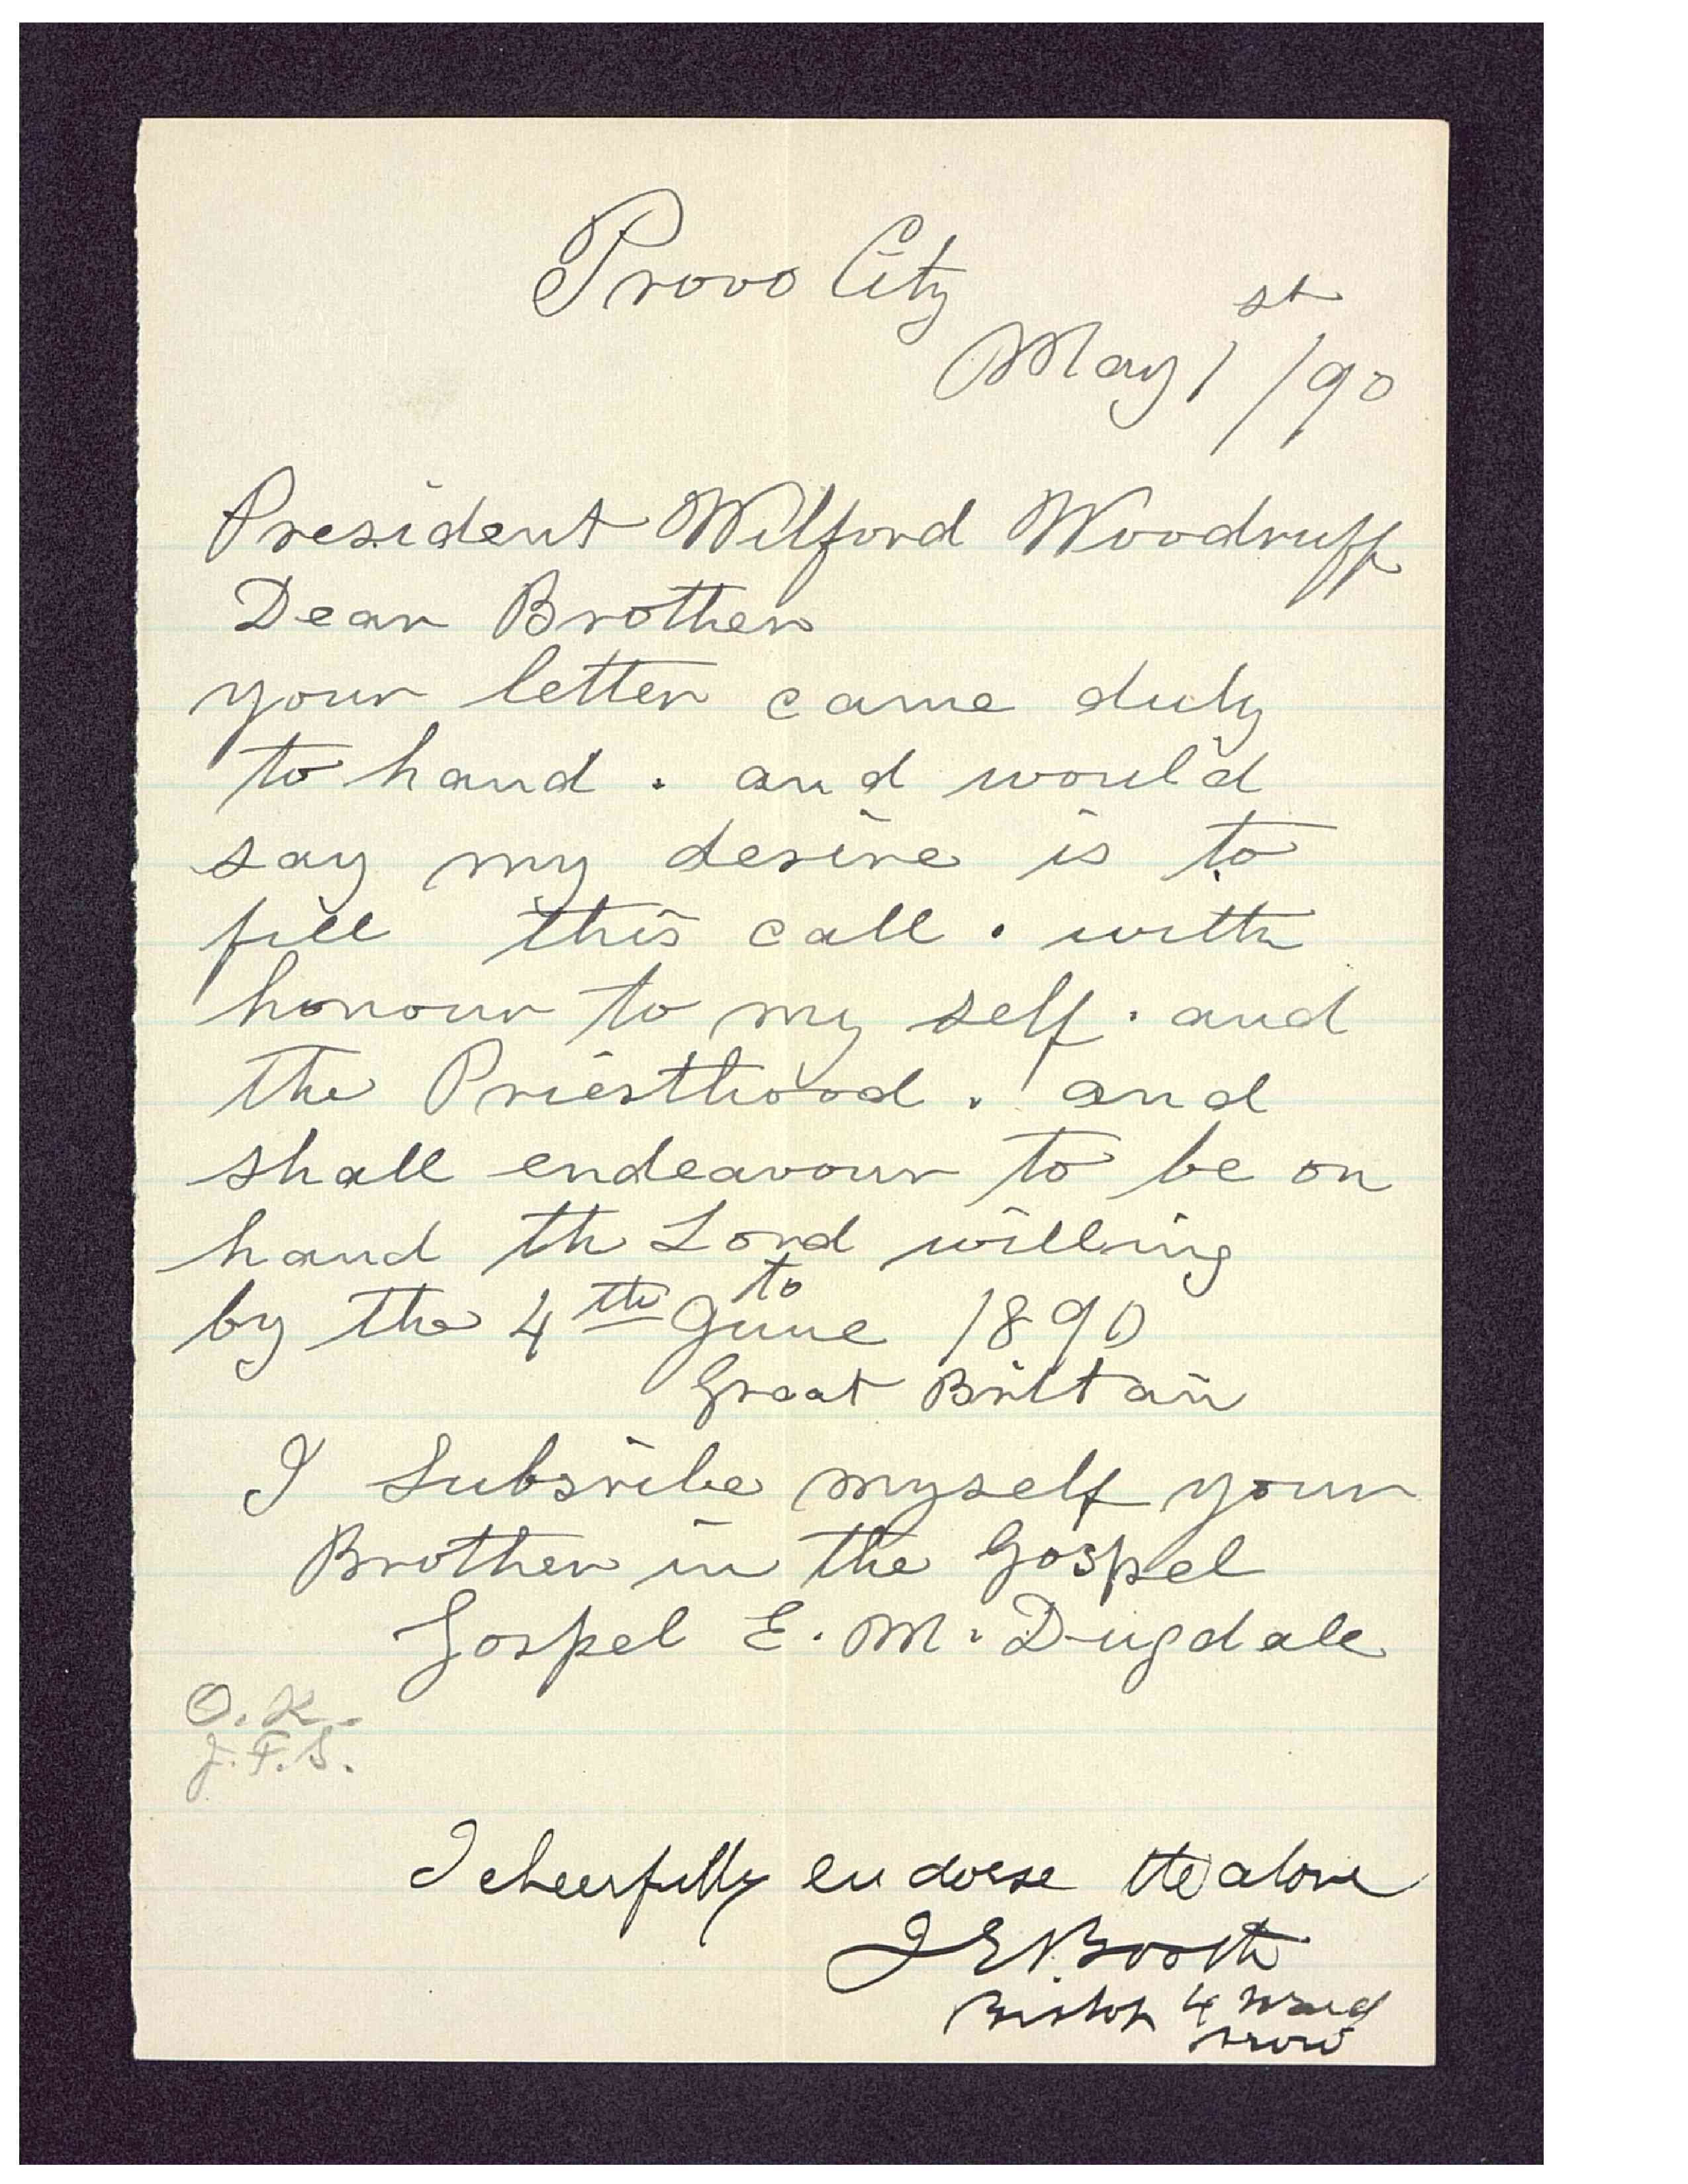 Provo City
May 1st /90
President Wilford Woodruff
Dear Brother
your letter came duly
to hand . and would
say my desire is to
fill this call . with
honour to my self . and
the Priesthood . and
shall endeavour to be on
hand th Lord willing
by the 4th June 1890
to
Great Brittain
I Subsribe myself your
Brother in the Gospel
Gospel E. M. Dugdale
O.K.
J.F.S.
I cheerfully endorse the above
J E Booth
Bishop 4 Ward
Provo